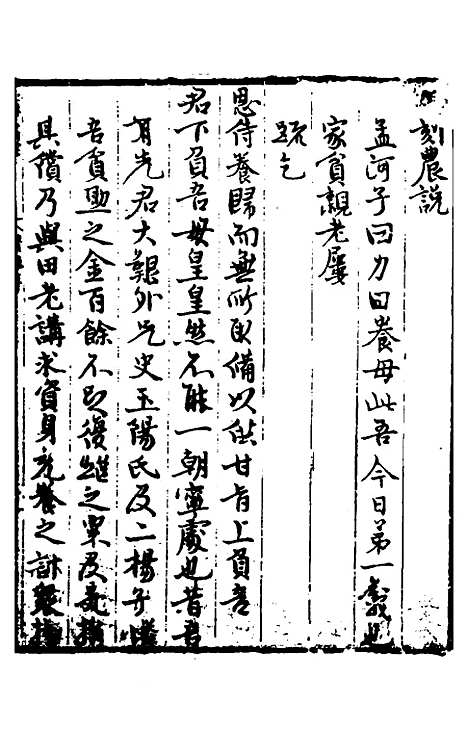 刻農說
孟河子曰力田養母此吾今日第一義也
家貧親老屢
疏乞
恩侍養歸而無所取備以供甘旨上負吾
君下負吾母皇皇然不能一朝寧處也昔吾
有先君大艱外兄史玉陽氏及二楊子
吾貧賙之金百餘不足復繼之粟及是
具償乃與田老講求資身充養之計